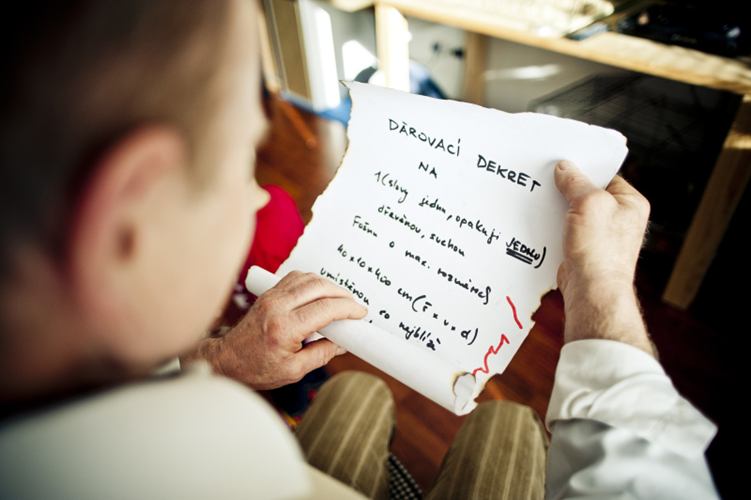 DAROVACÍ DEKRET
NA
1 (slovy jednu, opakuji JEDNU)
dřevěnou, suchou
Fošnu o max. rozměrech
40x10x400 cm (š x v x d)
umístěnou, co nejblíž